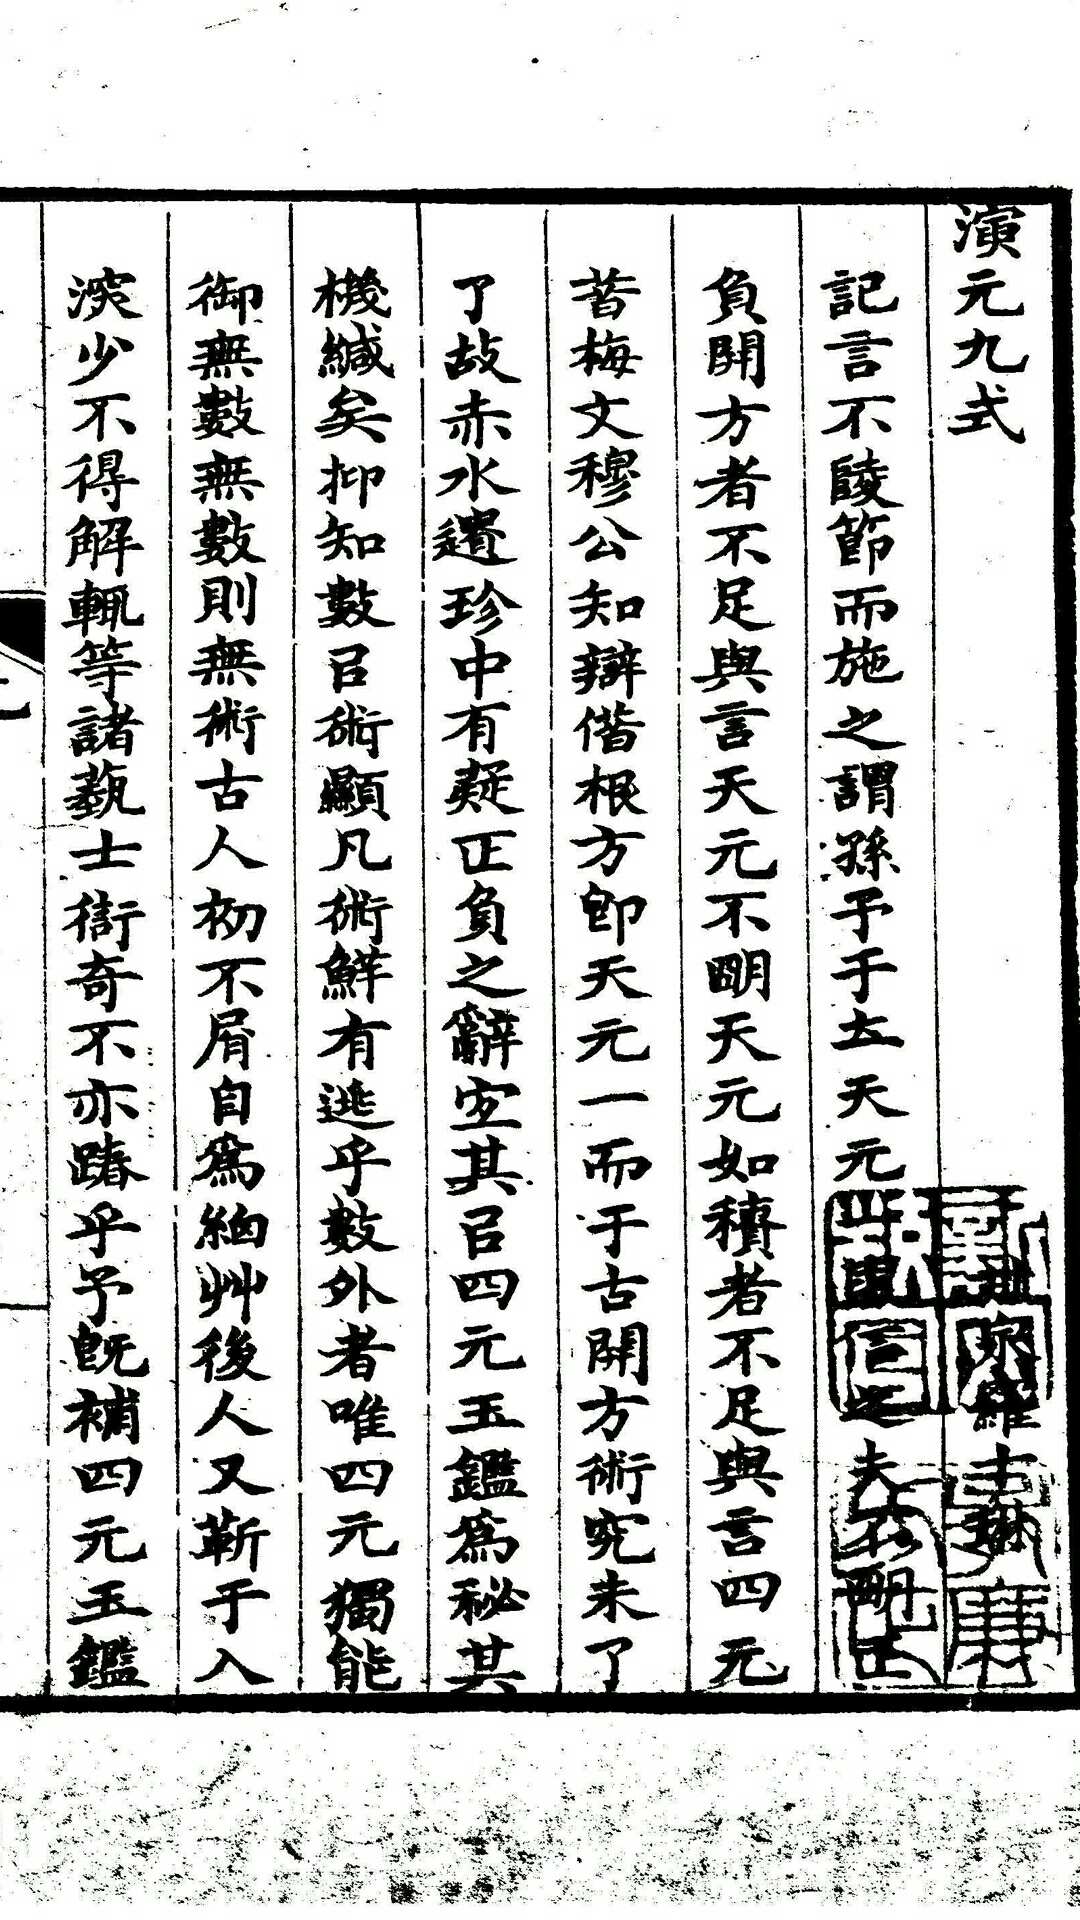 演元九式
記言不陵節而施之謂孫予于立天元
負開方者不足與言天元不明天元如積者不足與言四元
昔梅文穆公知辯偕根方卽天元一而于古開方術究未了
了故赤水遺珍中有疑正負之辭宐其㠯四元玉鑑爲秘其
機緘矣抑知數㠯術顯凡術鮮有逃乎數外者唯四元獨能
御無數無數則無術古人初不屑自爲細艸後人又靳于入
深少不得解輒等諸藝士衒奇不亦踳乎予既補四元玉鑑